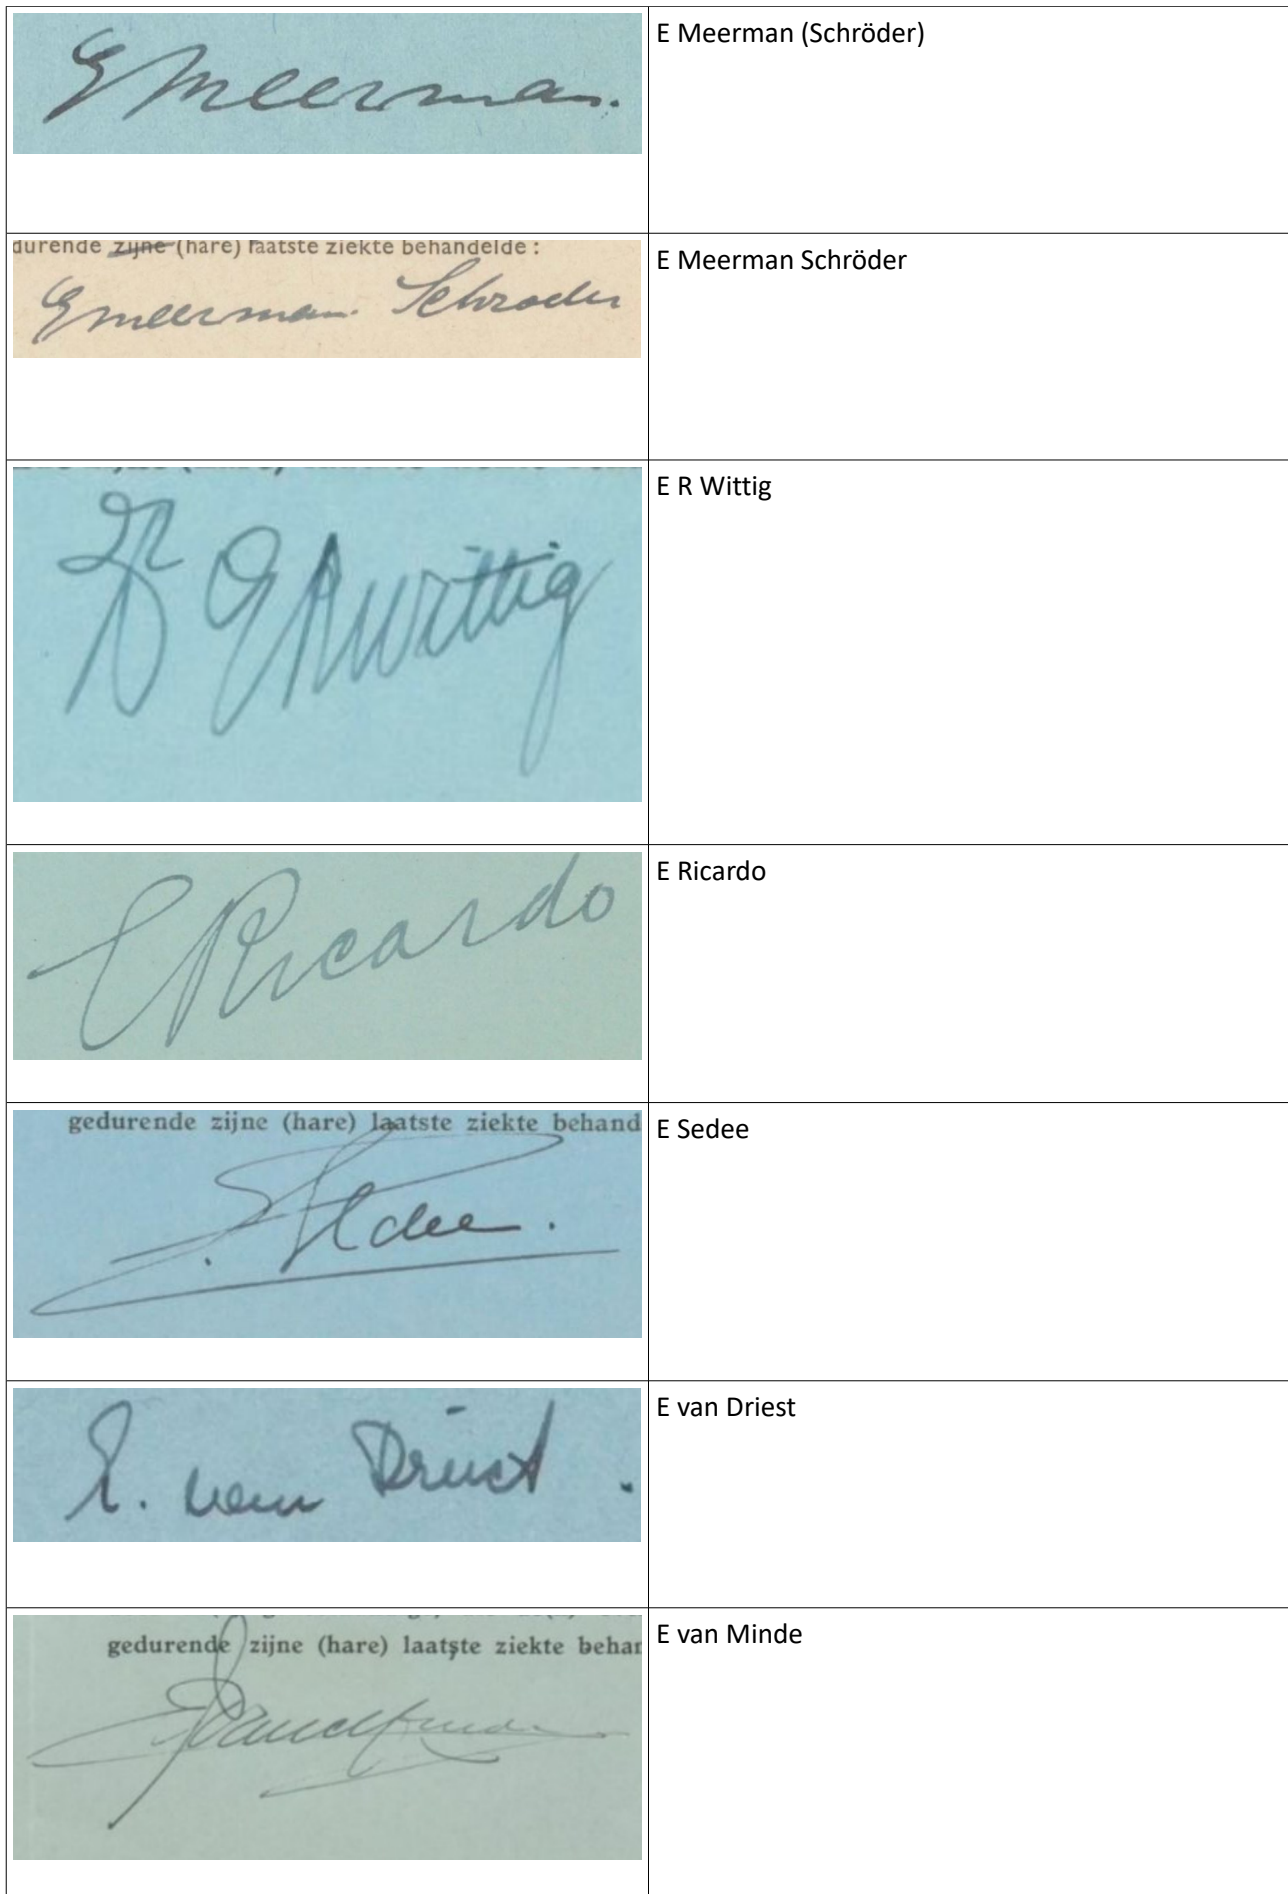 E Meerman.
E Meerman (Schröder)
durende zijne (hare) laatste ziekte behandelde :
E Meerman. Schroder
E Meerman Schröder
Dr E R Wittig
E R Wittig
E Ricardo
E Ricardo
gedurende zijne (hare) laatste ziekte behand
E. Sedee.
E Sedee
E. van Driest.
E van Driest
gedurende zijne (hare) laatste ziekte behan
E van Minde